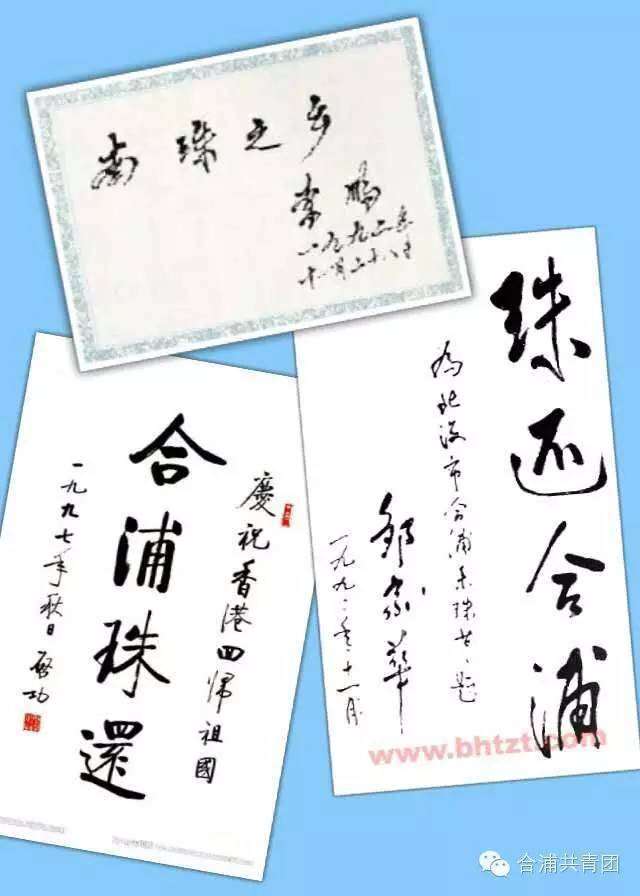 南珠之乡
李鹏
一九九二年
十一月二十八日
珠还合浦
为北海市合浦南珠节题
邹家华
一九九二年十一月
www.bhtzt.com
慶祝香港回歸祖國
合浦珠還
一九九七年秋日 啓功
合浦共青团